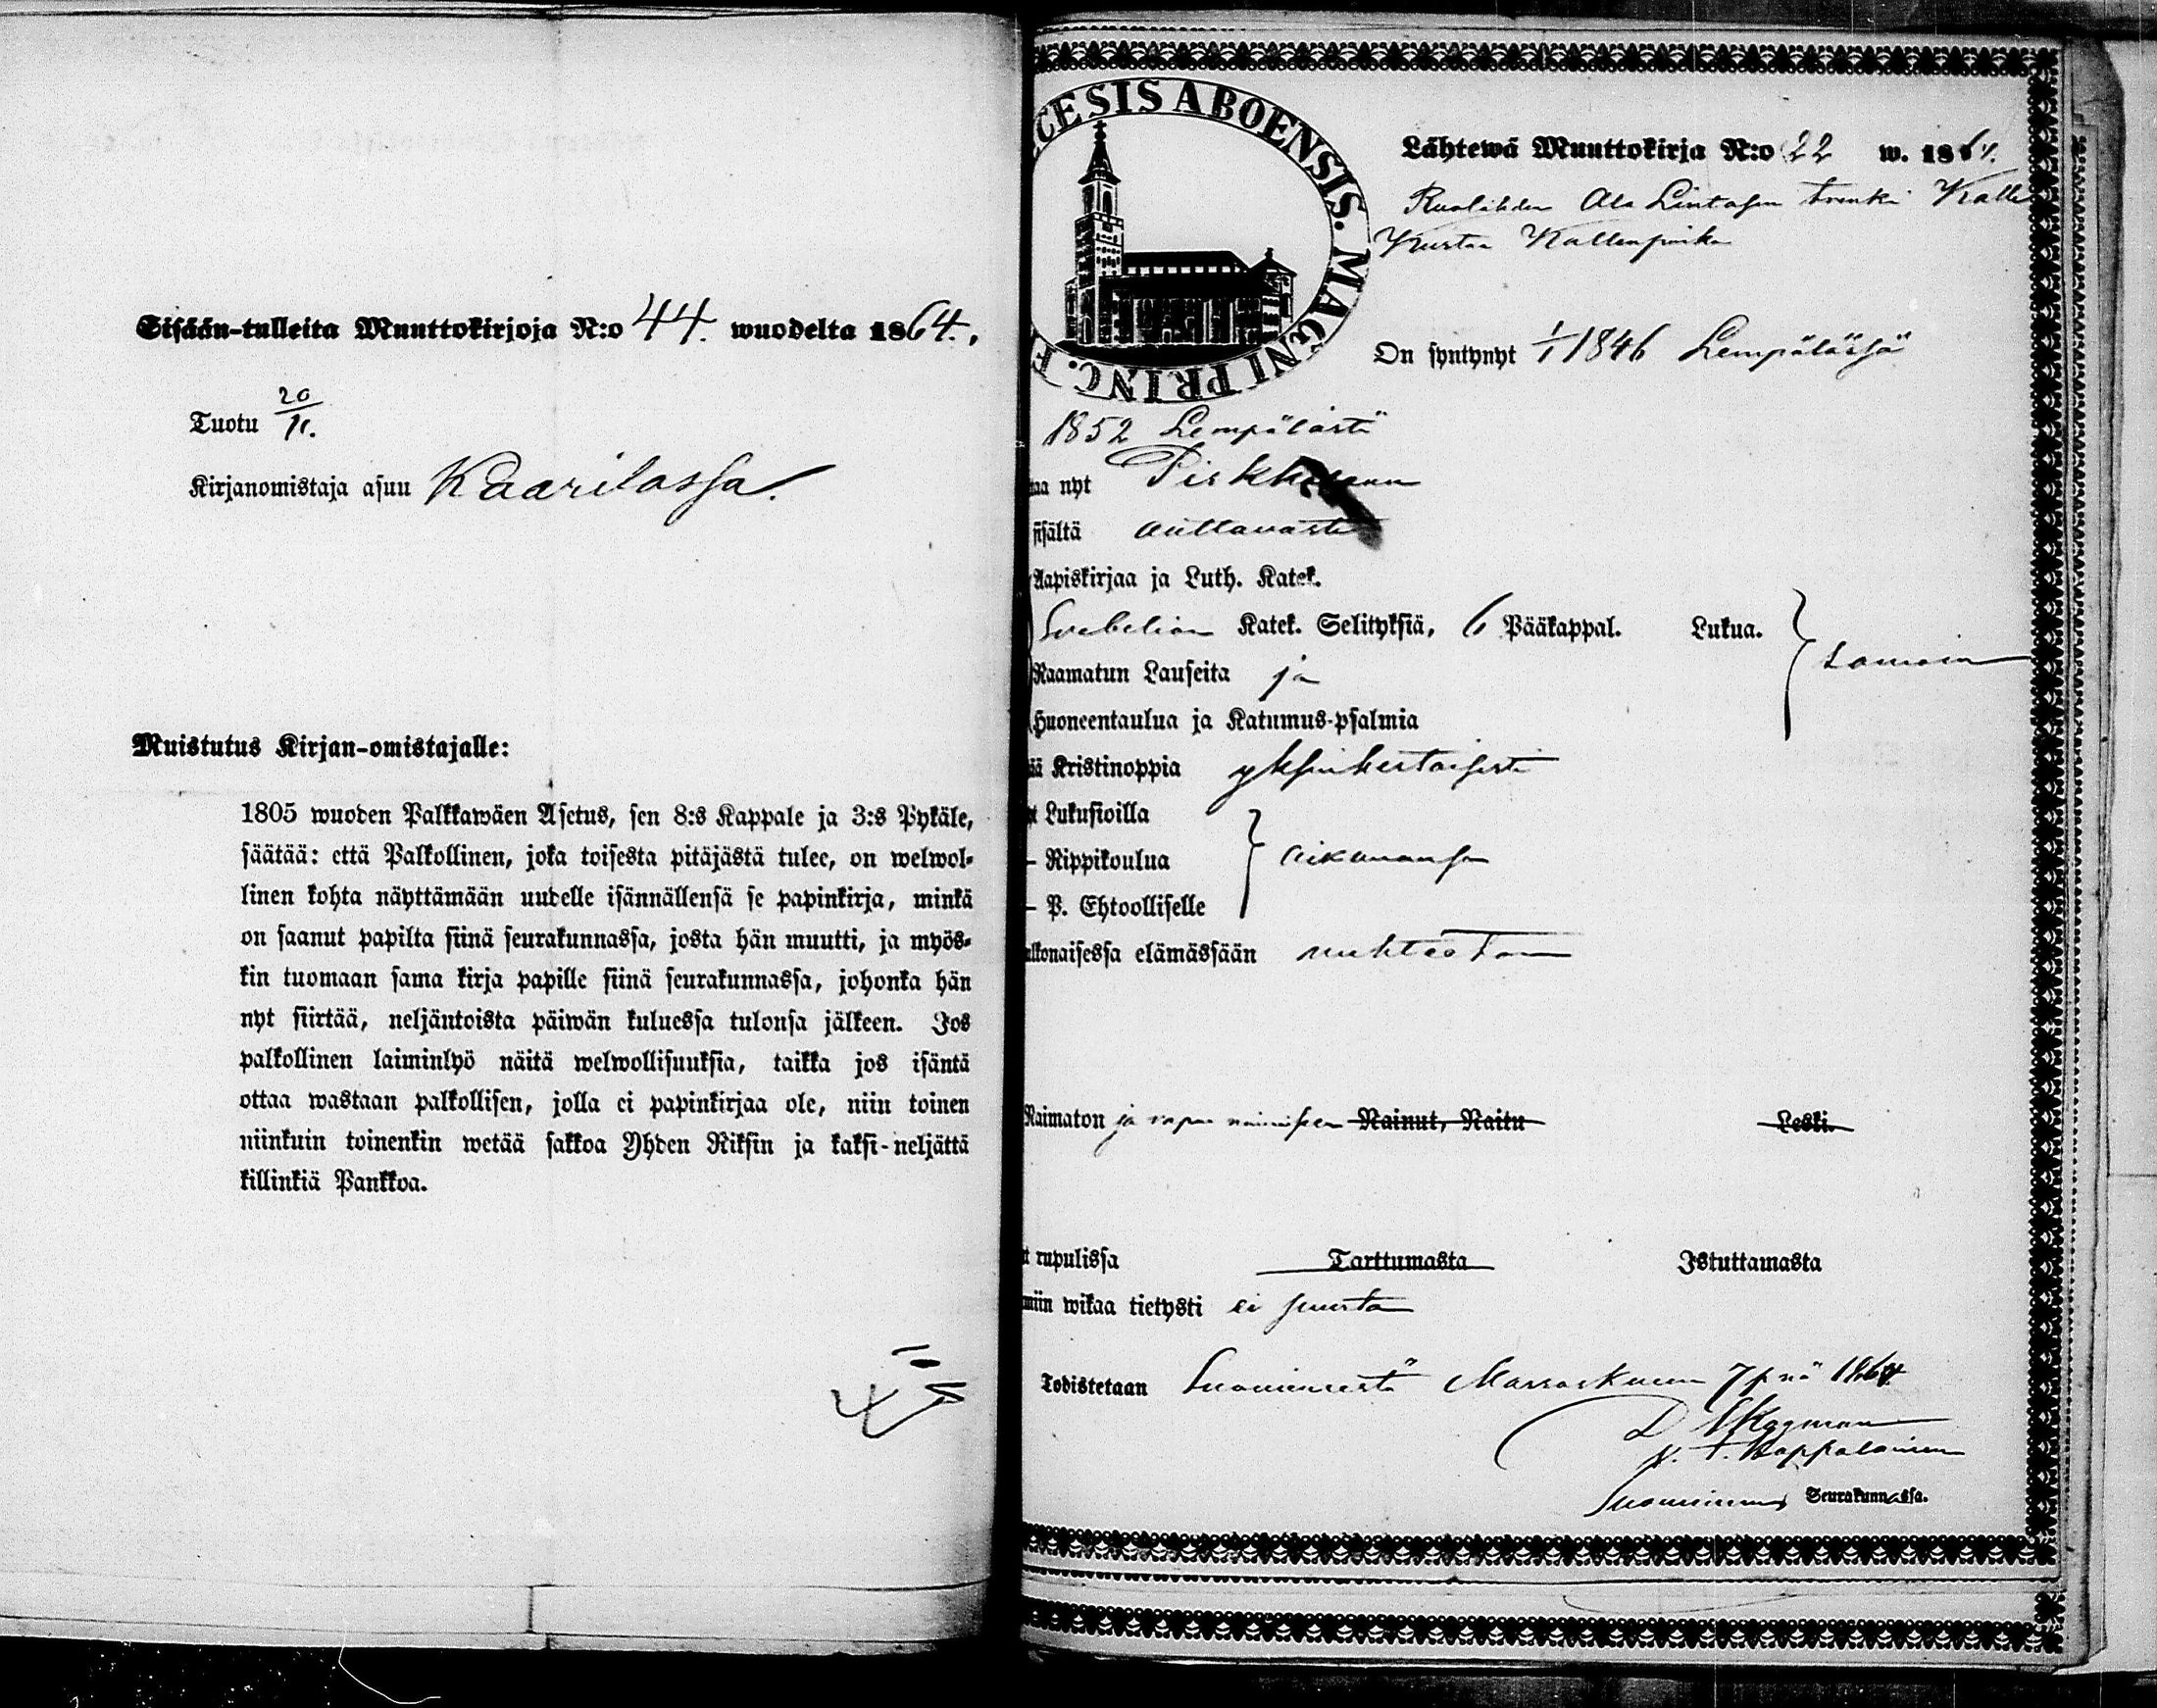 Sisään-tulleita Muuttokirjoja N:o 44. wuodelta 1864.,
Tuotu 20/11.
Kirjanomistaja asuu Kaarilassa.
Muistutus Kirjan-omistajalle:
1805 wuoden Palkkawäen Asetus, sen 8:s Kappale ja 3:s Pykäle,
säätää: että Palkollinen, joka toisesta pitäjästä tulee, on welwol-
linen kohta näyttämään uudelle isännällensä se papinkirja, minkä
on saanut papilta siinä seurakunnassa, josta hän muutti, ja myös-
kin tuomaan sama kirja papille siinä seurakunnassa, johonka hän
nyt siirtää, neljäntoista päiwän kuluessa tulonsa jälkeen. Jos
palkollinen laiminlyö näitä welwollisuuksia, taikka jos isäntä
ottaa wastaan palkollisen, jolla ei papinkirjaa ole, niin toinen
niinkuin toinenkin wetää sakkoa Yhden Riksin ja kaksi-neljättä
killinkiä Pankkoa.
CESIS ABOENSIS. MAGNI PRINC. F
Lähtewä Muuttokirja N:o 22 w. 1864.
Ala trenki Kalle
Kustaa Kallenpoika
On syntynyt 1/1 1846 Lempäälässä
1852 Lempäälästä
aa nyt
sisältä auttavasti
Aapiskirjaa ja Luth. Katek.
Svebelion Katek. Selityksiä, 6 Pääkappal. Lukua.
Raamatun Lauseita ja
samoin
Huoneentaulua ja Katumus-psalmia
ää Kristinoppia yksinkertaisesti
t Lukusioilla
— Rippikoulua aikanansa
— P. Ehtoolliselle
ulkonaisessa elämässään nuhteeton
Naimaton ja Nainut, Naitu Leski.
t rupulissa Tarttumasta Istuttamasta
miin wikaa tietysti ei suurta
Todistetaan Suoniemestä Marraskuun 7 pnä 1864
Kappalainen
Suoniemen Seurakunnassa.